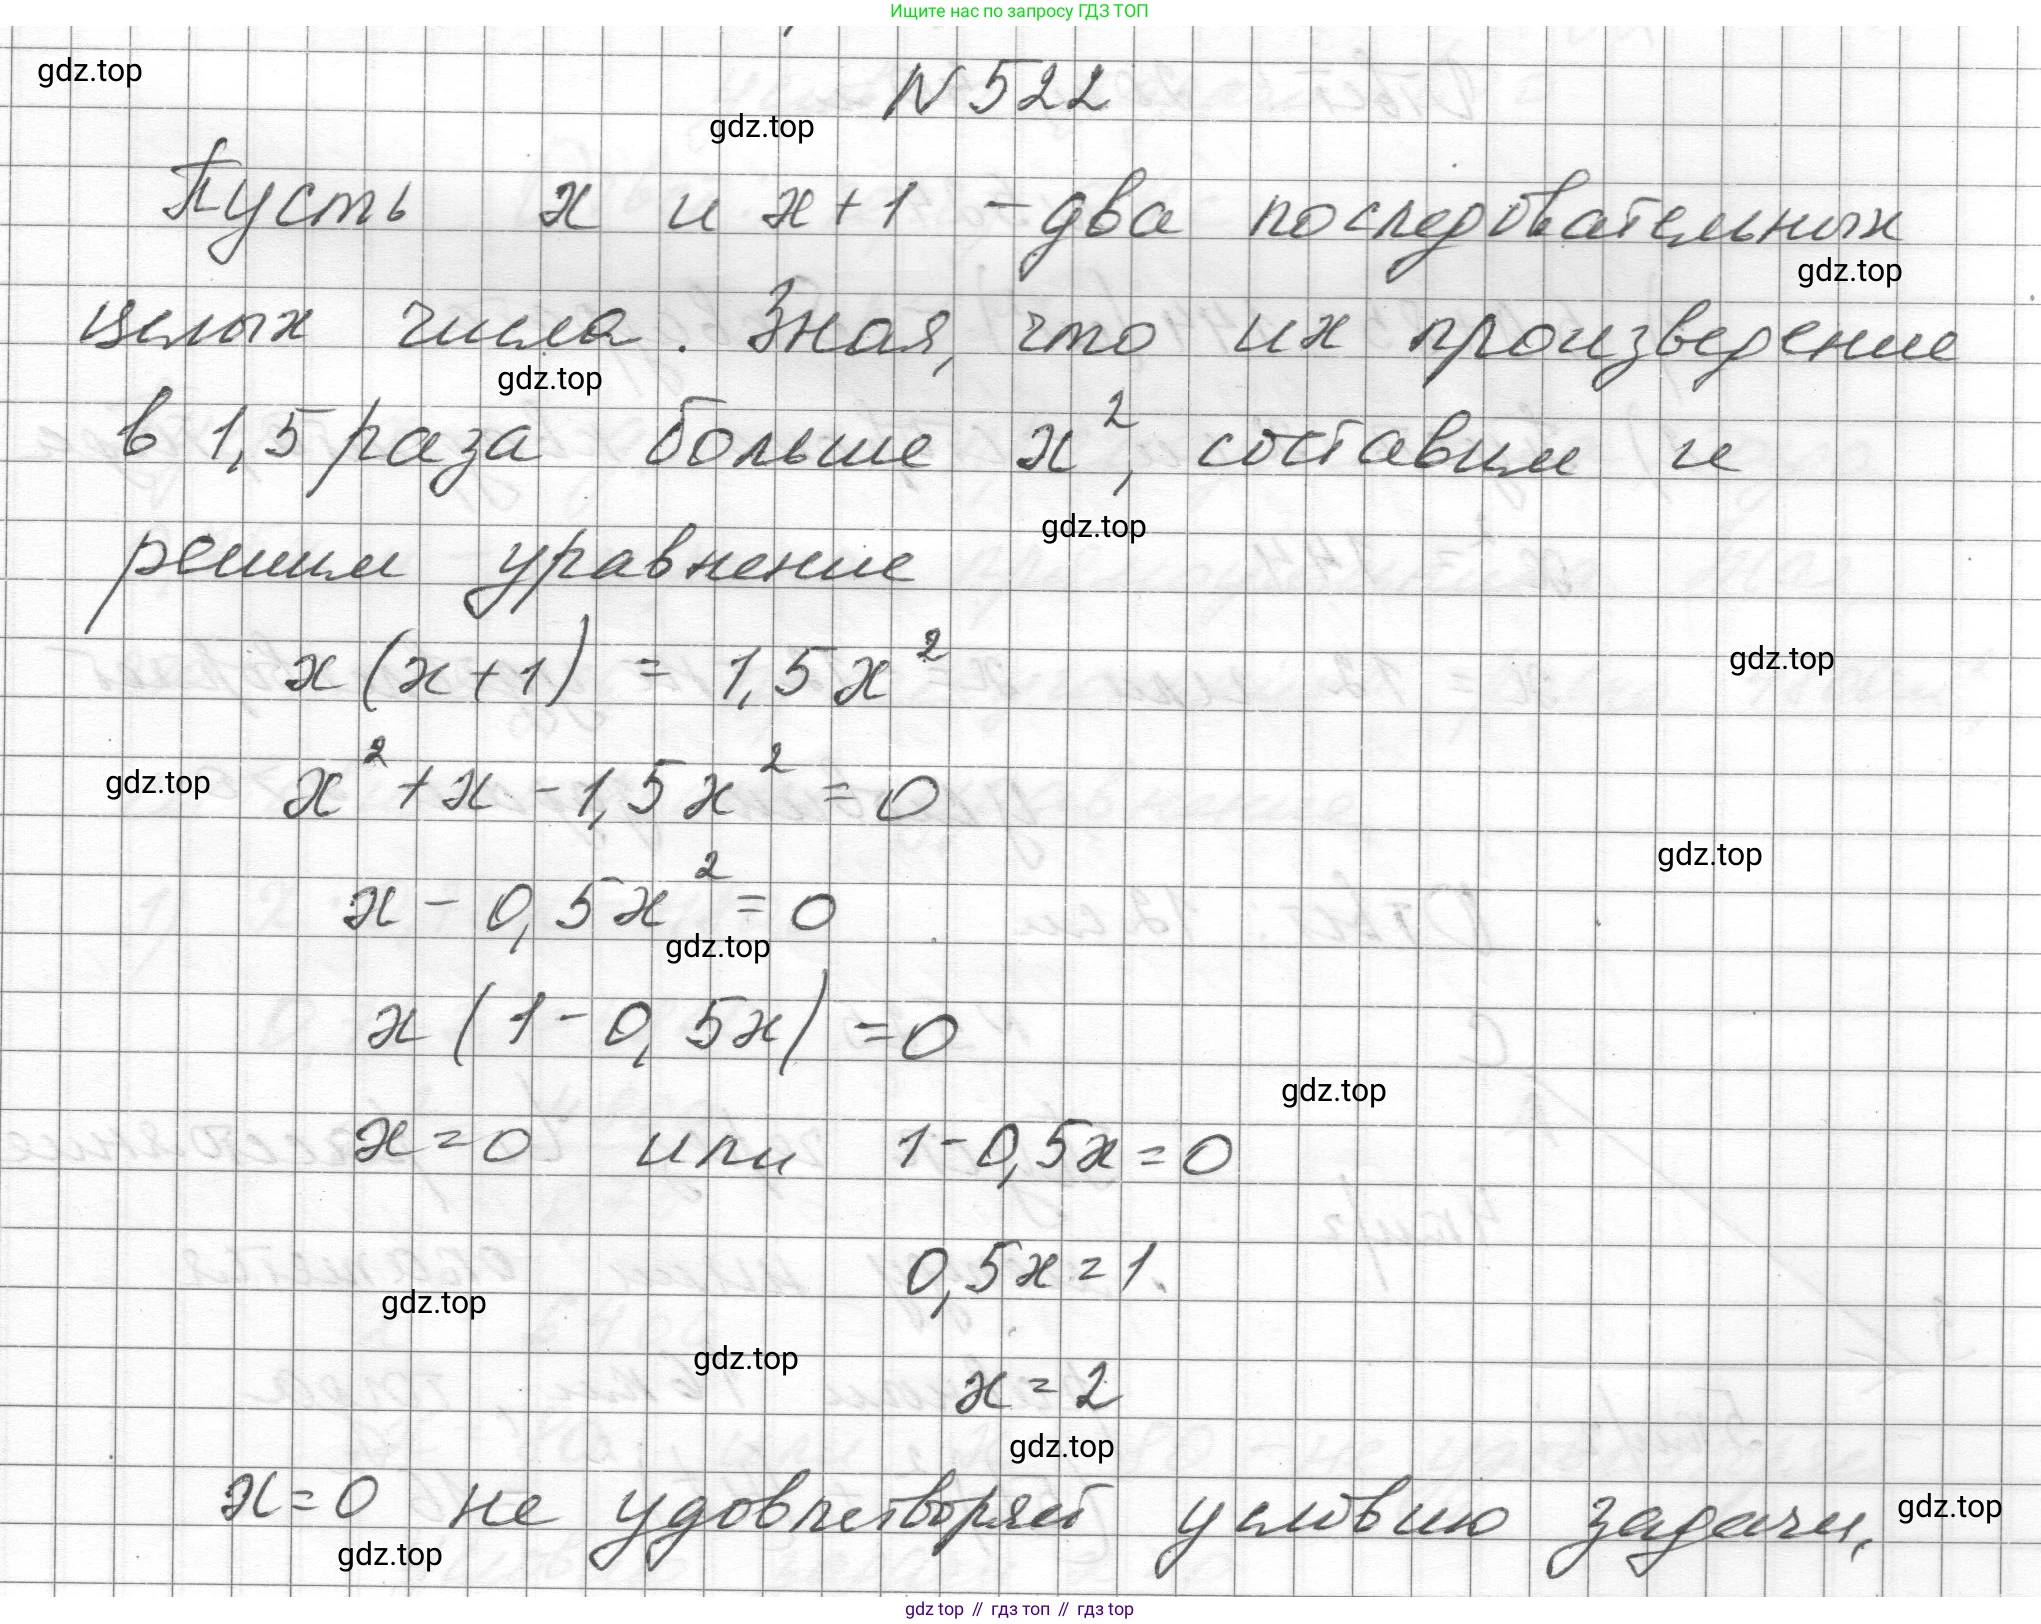 Ищите нас по запросу ГДЗ ТОП
gdz.top
N 522
gdz.top
Пусть x и x+1 - два последовательных
gdz.top
целых числа. Зная, что их произведение
gdz.top
в 1,5 раза больше x², составим и
gdz.top
решим уравнение
x(x+1) = 1,5x²
gdz.top
x² + x - 1,5x² = 0
gdz.top
gdz.top
x - 0,5x² = 0
gdz.top
x(1 - 0,5x) = 0
gdz.top
x=0 или 1-0,5x=0
0,5x=1
gdz.top
gdz.top
x=2
gdz.top
x=0 не удовлетворяет условию задачи,
gdz.top
gdz.top
gdz top // гдз топ // gdz top